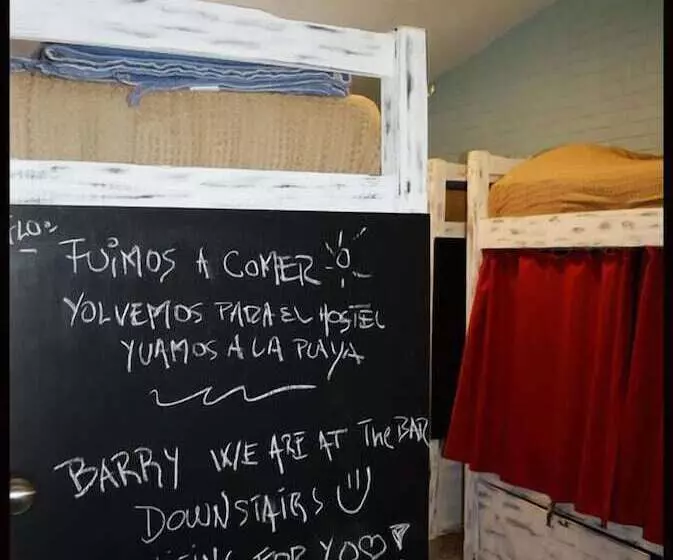 FUIMOS A COMER
YOLVEMOS PARA EL HOSTEL
YUAMOS A LA PLAYA
BARRY WE ARE AT The BAR
DOWNSTAIRS
FOR YOU